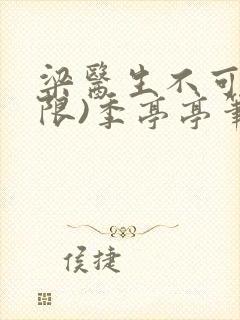 梁醫生不可
限)季亭亭
侯捷